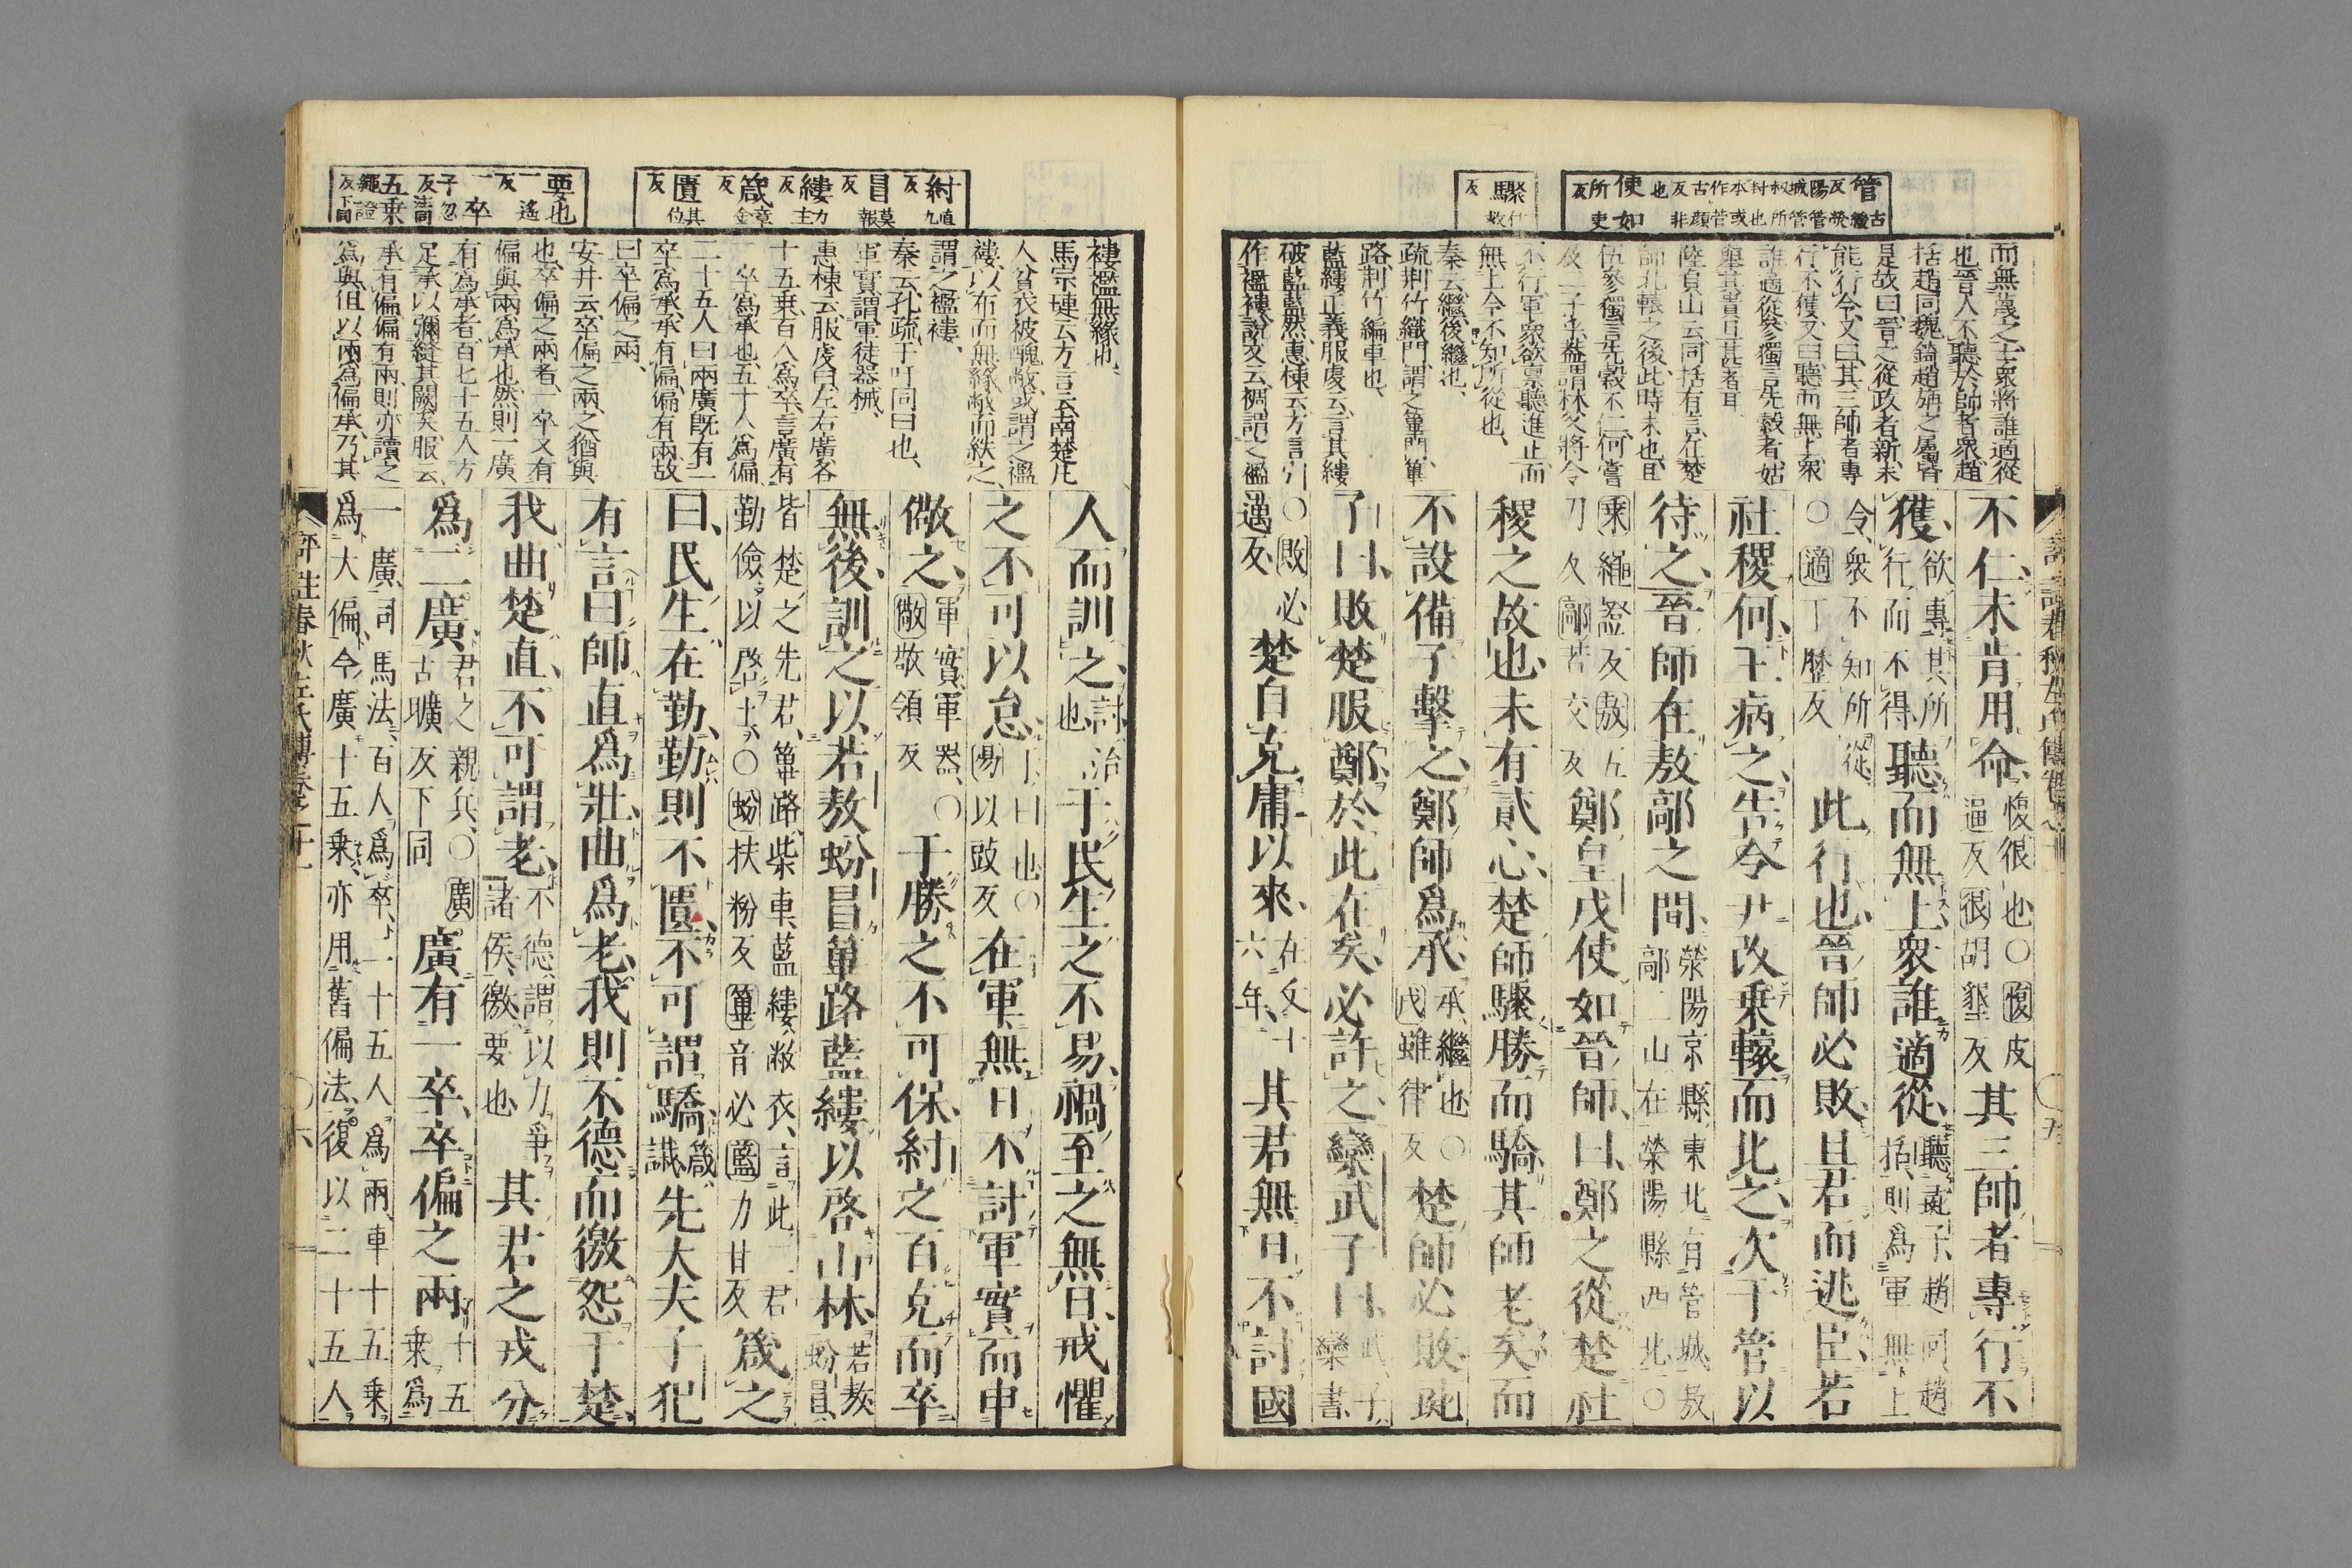 管古緩反滎陽城管叔所封也本或作菅古顏反非也
使如所吏反
驟仕救反
而無蔑之士衆將誰適從
也晉人不聽於帥者衆趙
括趙同魏錡趙旃之屬皆
是故曰晉之從政者新未
能行令又曰其三帥者專
行不獲又曰聽而無上衆
誰適從參獨言先縠者姑
舉其貴且甚者耳
陸貞山云同括有言在楚
師北轅之後此時未也且
伍參獨言先縠不仁何嘗
及二子乎蓋謂林父將令
不行軍衆欲稟聽進止而
無上令不知所從也
秦云繼後繼也
疏荆竹織門謂之篳門篳
路荆竹編車也
藍縷正義服虔云言其縷
破藍藍然惠棟云方言引
作襤褸說文云裯謂之襤
不仁未肯用命愎很也○愎皮逼反很胡墾反其三帥者專行不
獲欲專其所行而不得聽而無上衆誰適從聽彘子趙同趙括則爲軍無上
令衆不知所從○適丁歷反此行也晉師必敗且君而逃臣若
社稷何王病之告令尹改乘轅而北之次于管以
待之晉師在敖鄗之間滎陽京縣東北有管城敖鄗二山在滎陽縣西北○
乘繩證反敖五刀反鄗苦交反鄭皇戌使如晉師曰鄭之從楚社
稷之故也未有貳心楚師驟勝而驕其師老矣而
不設備子擊之鄭師爲承承繼也○戌雖律反楚師必敗彘
子曰敗楚服鄭於此在矣必許之欒武子曰武子欒書
○敗必邁反楚自克庸以來在文十六年其君無日不討國
紂直九反
冒莫報反
縷力主反
箴章金反
匱其位反
要一遙反
一卒子忽反注同
五乘繩證反下同
褸襤無緣也
馬宗璉云方言云南楚凡
人貧衣被醜敝或謂之襤
褸以布而無緣敝而紩之
謂之襤褸
秦云孔疏于吁同曰也
軍實謂軍徒器械
惠棟云服虔曰左右廣各
十五乘百人爲卒言廣有
一卒爲承也五十人爲偏
二十五人曰兩廣既有一
卒爲承承有偏偏有兩故
曰卒偏之兩
安井云卒偏之兩之猶與
也卒偏之兩者一卒又有
偏與兩爲承也然則一廣
有爲承者百七十五人方
足承以彌縫其闕矣服云
承有偏偏有兩則亦讀之
爲與但以兩爲偏承乃其
人而訓之討治也于民生之不易禍至之無日戒懼
之不可以怠于曰也○易以豉反在軍無日不討軍實而申
儆之軍實軍器○儆敬領反于勝之不可保紂之百克而卒
無後訓之以若敖蚡冒篳路藍縷以啓山林若敖蚡冒
皆楚之先君篳路柴車藍縷敝衣言此二君勤儉以啓土○蚡扶粉反篳音必藍力甘反箴之
曰民生在勤勤則不匱不可謂驕箴誡先大夫子犯
有言曰師直爲壯曲爲老我則不德而徼怨于楚
我曲楚直不可謂老不德謂以力爭諸侯徼要也其君之戎分
爲二廣君之親兵○廣古曠反下同廣有一卒卒偏之兩十五乘爲
一廣司馬法百人爲卒二十五人爲兩車十五乘
爲大偏今廣十五乘亦用舊偏法復以二十五人